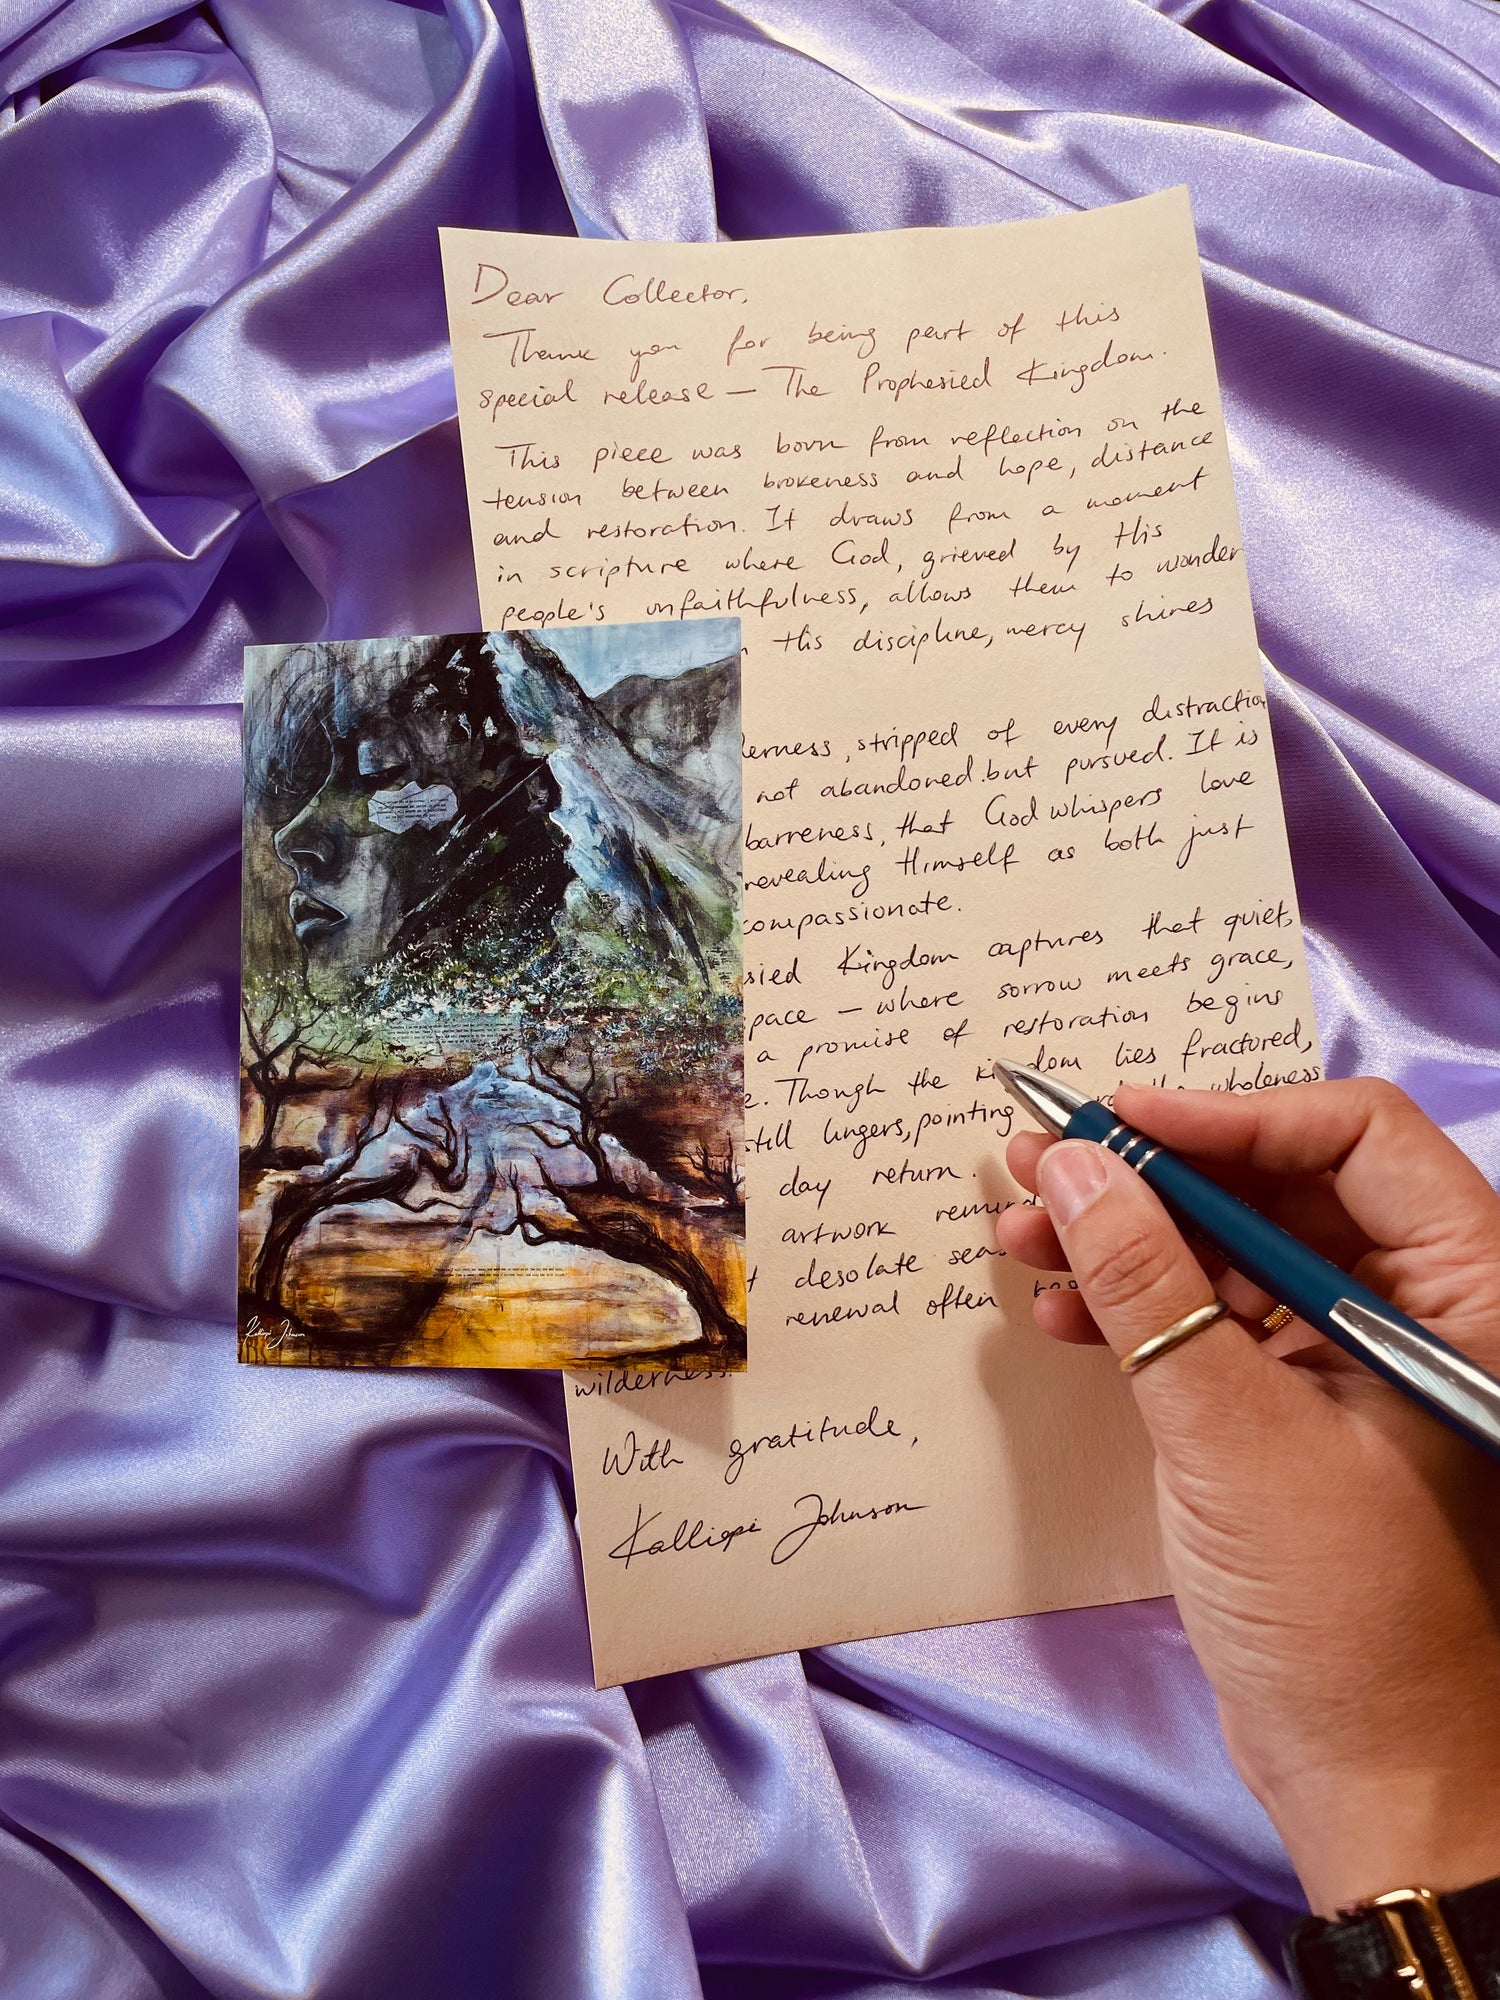 Dear Collector,
Thank you for being part of this
special release — The Prophesied Kingdom.
This piece was born from reflection on the
tension between brokeness and hope, distance
and restoration. It draws from a moment
in scripture where God, grieved by His
people's unfaithfulness, allows them to wonder
His discipline, mercy shines
stripped of every distraction
not abandoned but pursued. It is
barreness, that God whispers love
revealing Himself as both just
compassionate.
Kingdom captures that quiet,
where sorrow meets grace,
a promise of restoration begins
Though the kingdom lies fractured,
lingers, pointing wholeness
day return.
artwork
desolate
renewal often
wilderness.
With gratitude,
Kalliopi Johnson
Kalliopi Johnson